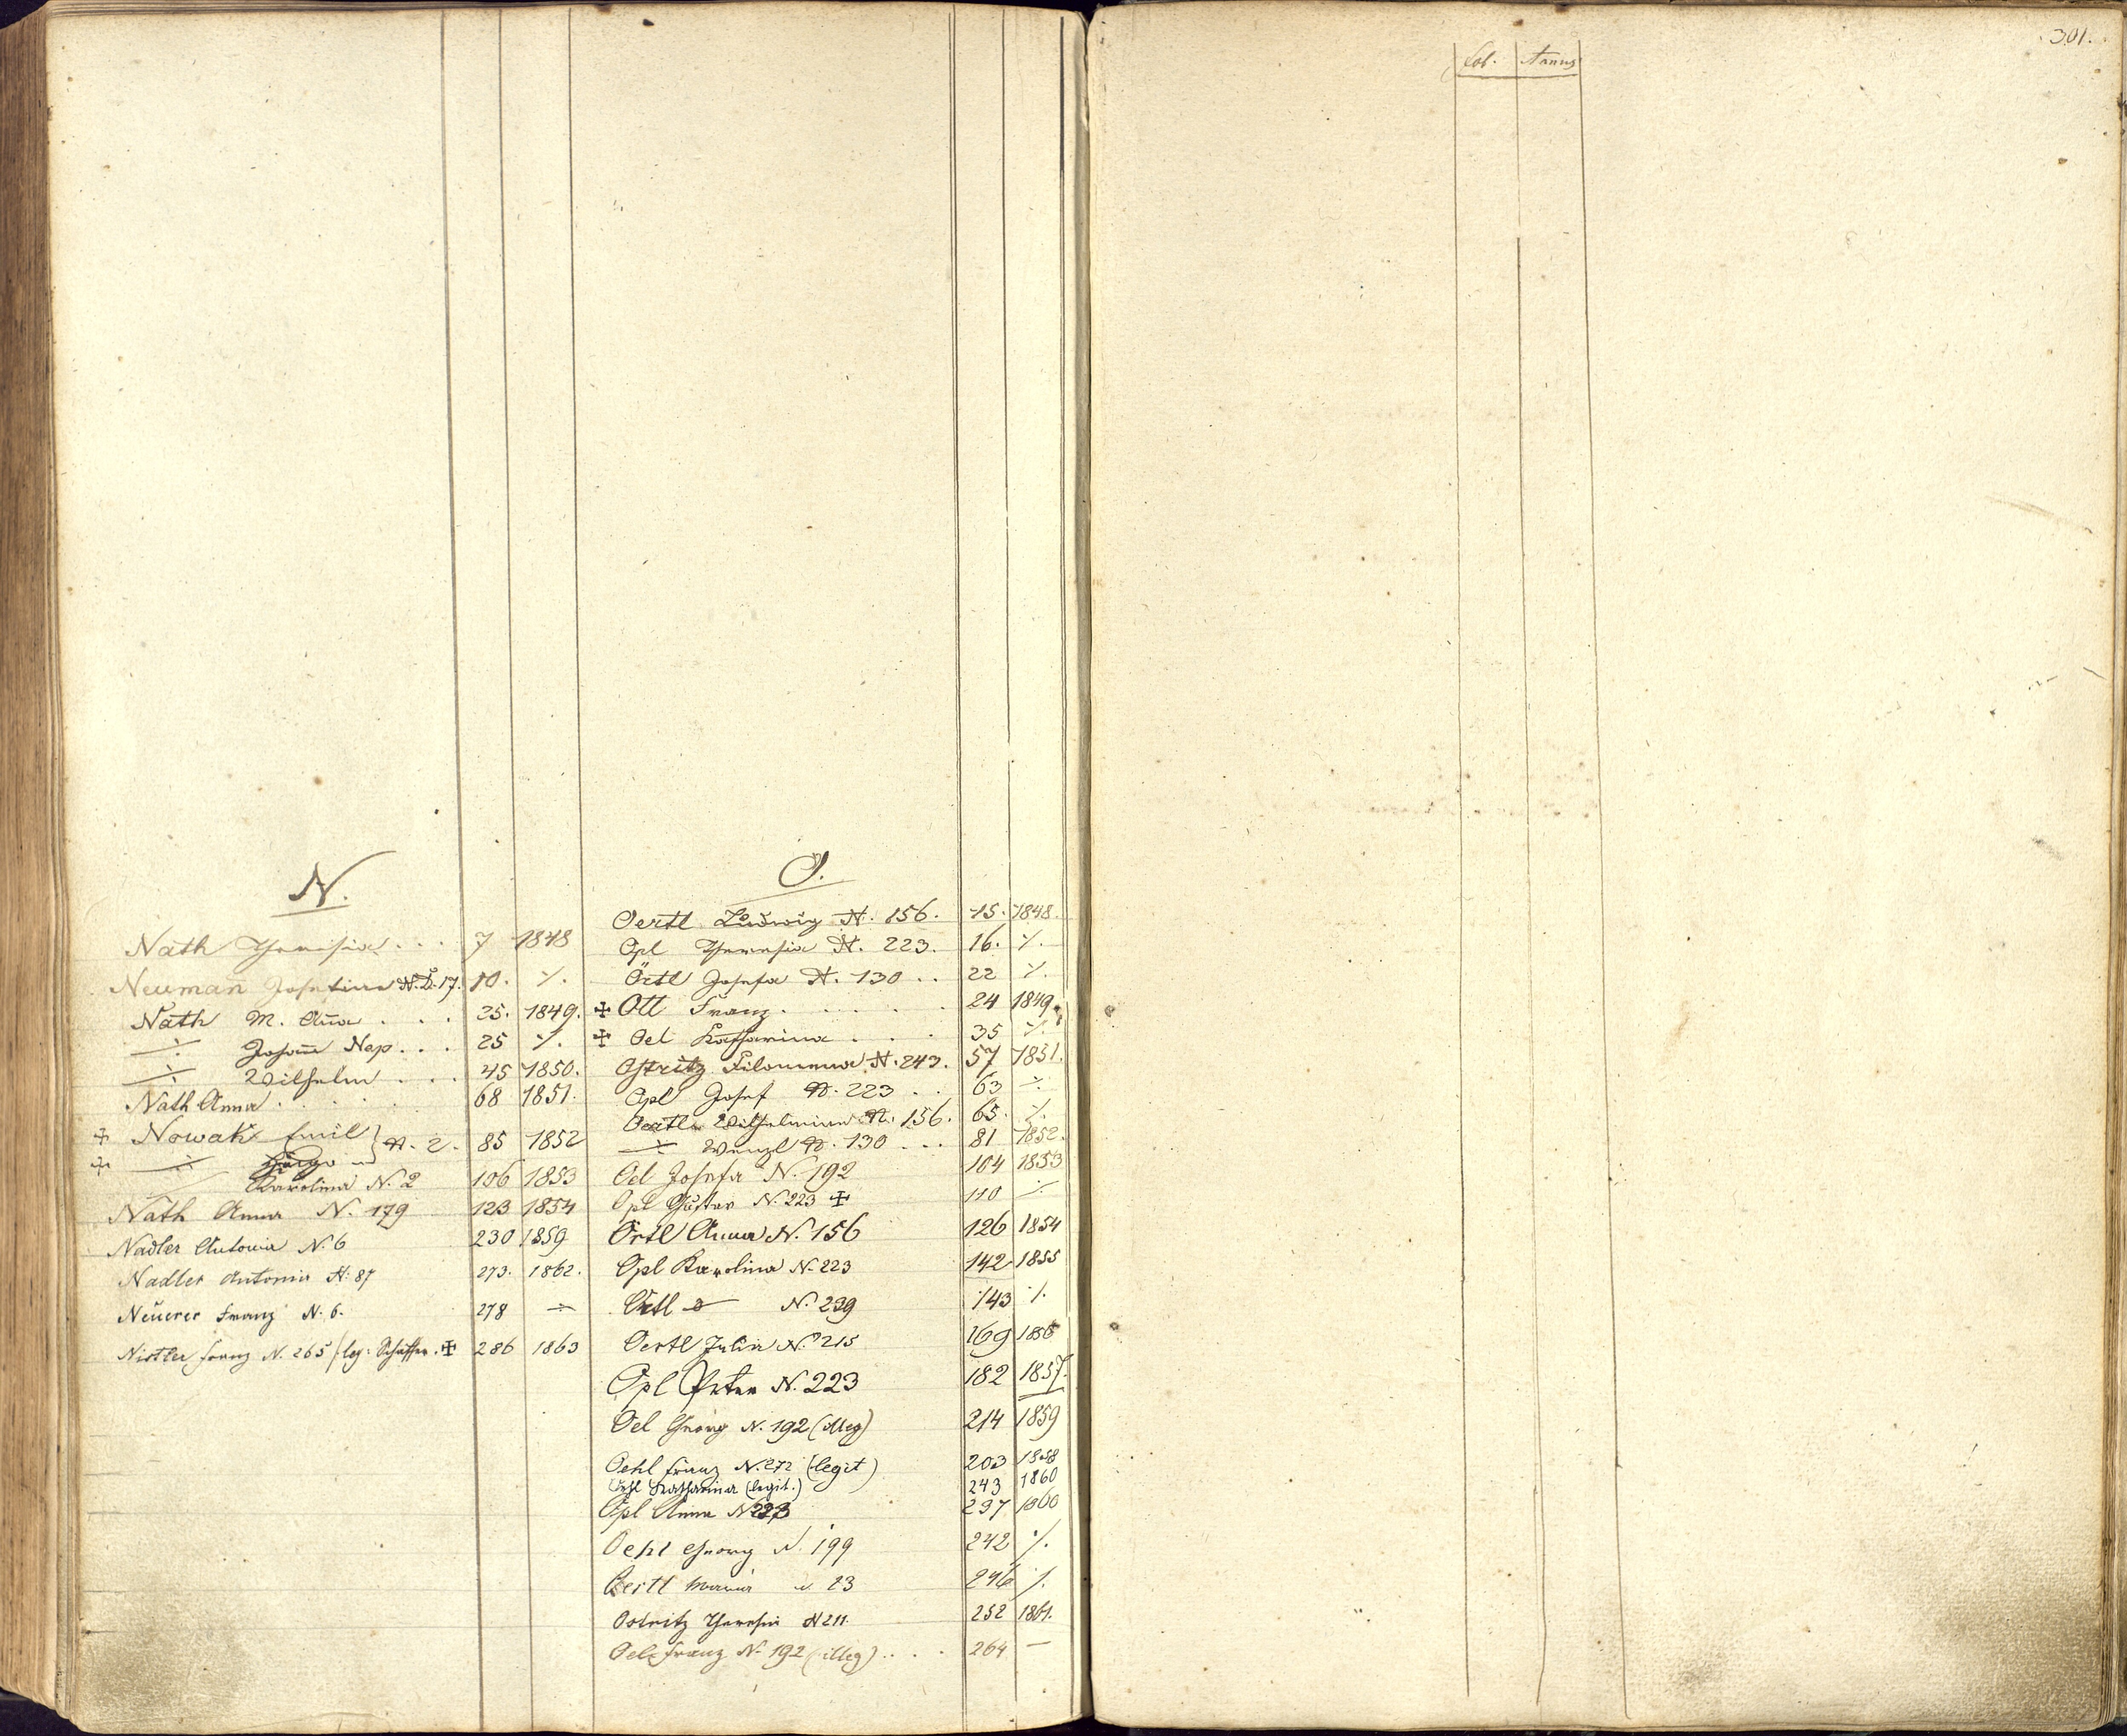 N.
Nath Theresia . . . 7 1848
Neuman̄ Josefina N. 17. 10. ·/.
Nath M. An̄a . . . 25. 1849.
-÷- Johan̄ Nep. . . 25 ·/.
-÷- Wilhelm . . . 45 1850.
Nath Anna . . . . 68 1851.
✠ Nowak Emil } N. 2. 85 1852
✠ -÷- Hugo
Karolina N. 2 106 1853
Nath Anna N. 179 123 1854
Nadler Antonia N. 6 230 1859
Nadler Antonia N. 87 273. 1862.
Neuerer Franz N. 6. 278 -÷-
Nistler Franz N. 265 /leg: Schaffer. ✠ 286 1863
O.
Oertl Ludwig N. 156. 15. 1848.
Opl Theresia N. 223. 16. ·/.
Örtl Josefa N. 130 . . 22 ·/.
✠ Ott Franz . . . . . 24 1849.
✠ Oel Katharina . . . 35 ·/.
Ostritz Filomena N. 243. 57 1851.
Opl Josef N. 223 . . 63 -÷-
Oertl Wilhelmine N. 156. 65. ·/.
-÷- Wenzl N. 130 . . . 81 1852.
Oel Josefa N. 192 104 1853
Opl Gustav N. 223 ✠ 110 ·/.
Örtl Anna N. 156 126 1854
Opl Karolina N. 223 142 1855
Örtl N. 239 143 ·/.
Oertl Julia N. 215 169 1856
Opl Peter N. 223 182 1857.
Oel Georg N. 192 (illeg) 214 1859
Oehl Franz N. 272 (legit) 203 1858
Oehl Katharina (legit.) 243 1860
Opl Anna N 223 237 1860
Oehl Georg N. 199 242 ·/.
Oertl Maria N. 23 246 ·/.
Ostritz Theresia N 211. 252 1861.
Oel Franz N. 192 (illeg) . . . . 264 —
301.
Fol. Annus